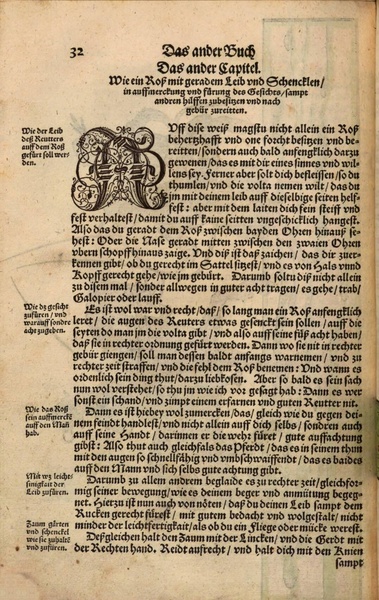 32
Das ander Buch
Das ander Capitel.
Wie ein Roß mit geradem Leib vnd Schencklen/
in auffmerckung vnd fürung des Gesichts/sampt
andren hülffen zubesitzen vnd nach
gebür zureitten.
Wie der Leib
deß Reutters
auff dem Roß
gefürt soll wer/
den.
AUff dise weiß magstu nicht allein ein Roß
behertzhafft vnd one forcht besitzen vnd be/
reitten/sondern auch bald anfengklich darzu
gewenen/das es mit dir eines sinnes vnd wil/
lens sey. Ferner aber solt dich befleissen/so du
thumlen/vnd die volta nemen wilt/das du
jm mit deinem leib auff dieselbige seiten helf/
fest: aber mit dem laiten dich sein steiff vnd
fest verhaltest/damit du auff kaine seitten vngeschicklich hangest.
Also das du geradt dem Roß zwischen bayden Ohren hinauß se/
hest: Oder die Nase geradt mitten zwischen den zwaien Ohren
vbern schopff hinaus zaige. Vnd diß ist daß zaichen/das dir zuer/
kennen gibt/ob du gerecht im Sattel sitzest/vnd es von Hals vnnd
Kopff gerecht gehe/wie jm gebürt. Darumb soltu diß nicht allein
zu disem mal/sonder allwegen in guter acht tragen/es gehe/trab/
Galopier oder lauff.
Wie dz gesicht
zufüren/vnd
warauff sonder
acht zugeben.
Es ist wol war vnd recht/daß/so lang man ein Roß anfengklich
leret/die augen des Reuters etwas gesenckt sein sollen/auff die
seyten do man jm die volta gibt/vnd also auff seine füß acht haben/
daß sie in rechter ordnung gefürt werden. Dann wo sie nit in rechter
gebür giengen/soll man dessen baldt anfangs warnemen/vnd zu
rechter zeit straffen/vnd die fehl dem Roß benemen: Vnd wann es
ordenlich sein ding thut/darzu liebkosen. Aber so bald es sein sach
nun wol verstehet/so thu jm wie ich vor gesagt hab: Dann es wer
sonst ein schand/vnd zimpt einem erfarnen vnd guten Reutter nit.
Wie das Roß
sein auffmercks
auff den Mañ
hab.
Dann es ist hiebey wol zumercken/das/gleich wie du gegen dei/
nem feindt handlest/vnd nicht allein auff dich selbs/sondren auch
auff seine Handt/darinnen er die wehr füret/gute auffachtung
gibst: Also thut auch gleichfals das Pferdt/das es in seinem thun
mit den augen so schnellfähig vnd vmbschwaiffendt/das es baides
auff den Mann vnd sich selbs gute achtung gibt.
Mit wz leicht/
sinigkait der
Leib zufüren.
Darumb zu allem andren beglaide es zu rechter zeit/gleichfor/
mig seiner bewegung/wie es deinem beger vnd anmütung begeg/
net. Hierzu ist nun auch von nöten/daß du deinen Leib sampt dem
Rucken gerecht fürest/mit gutem bedacht vnd wolgestalt/nicht
minder der leichtfertigkait/als ob du ein Fliege oder mücke werest.
Zaum gärten
vnd schenckel
wie sie zuhaltẽ
vnd zufüren.
Deßgleichen halt den Zaum mit der Lincken/vnd die Gerdt mit
der Rechten hand. Reidt auffrecht/vnd halt dich mit den Knien
sampt